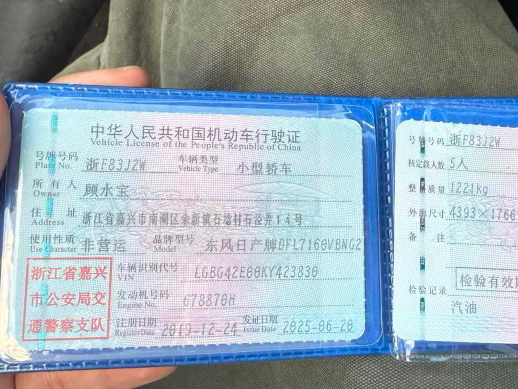 中华人民共和国机动车行驶证
Vehicle License of the People's Republic of China
号牌号码 浙F83J2W 车辆类型 小型轿车
Plate No. Vehicle Type
所有人 顾水宝
Owner
住址 浙江省嘉兴市南湖区余新镇石堰村石泾弄14号
Address
使用性质 非营运 品牌型号 东风日产牌DFL7160VBNG2
Use Character Model
浙江省嘉兴
市公安局交
通警察支队
车辆识别代号 LGBG42E00KY423830
VIN
发动机号码 678870H
Engine No.
注册日期 2019-12-24 发证日期 2025-06-20
Register Date Issue Date
号牌号码 浙F83J2W
核定载人数 5人
整 质量 1221kg
外廓尺寸 4393×1766
备注
检验有效
检验记录
汽油